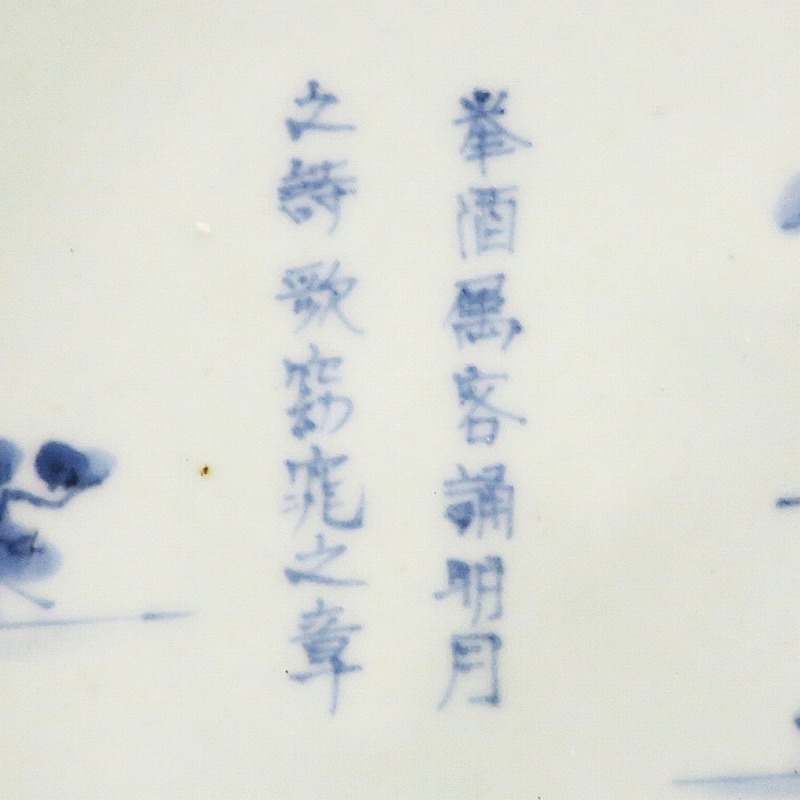 挙酒属客誦明月
之詩歌窈窕之章